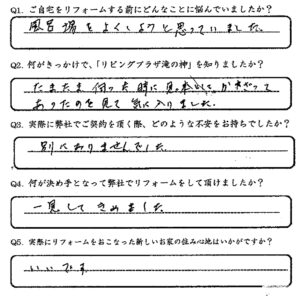 Q1. ご自宅をリフォームする前にどんなことに悩んでいましたか？
風呂場をよくしようと思っていました。
Q2. 何がきっかけで、「リビングプラザ滝の神」を知りましたか？
たまたま 行った時に見
あったのを見て 気に入りました。
Q3. 実際に弊社でご契約を頂く際、どのような不安をお持ちでしたか？
別にありませんでした。
Q4. 何が決め手となって弊社でリフォームをして頂けましたか？
一見して きめました。
Q5. 実際にリフォームをおこなった新しいお家の住み心地はいかがですか？
いいです